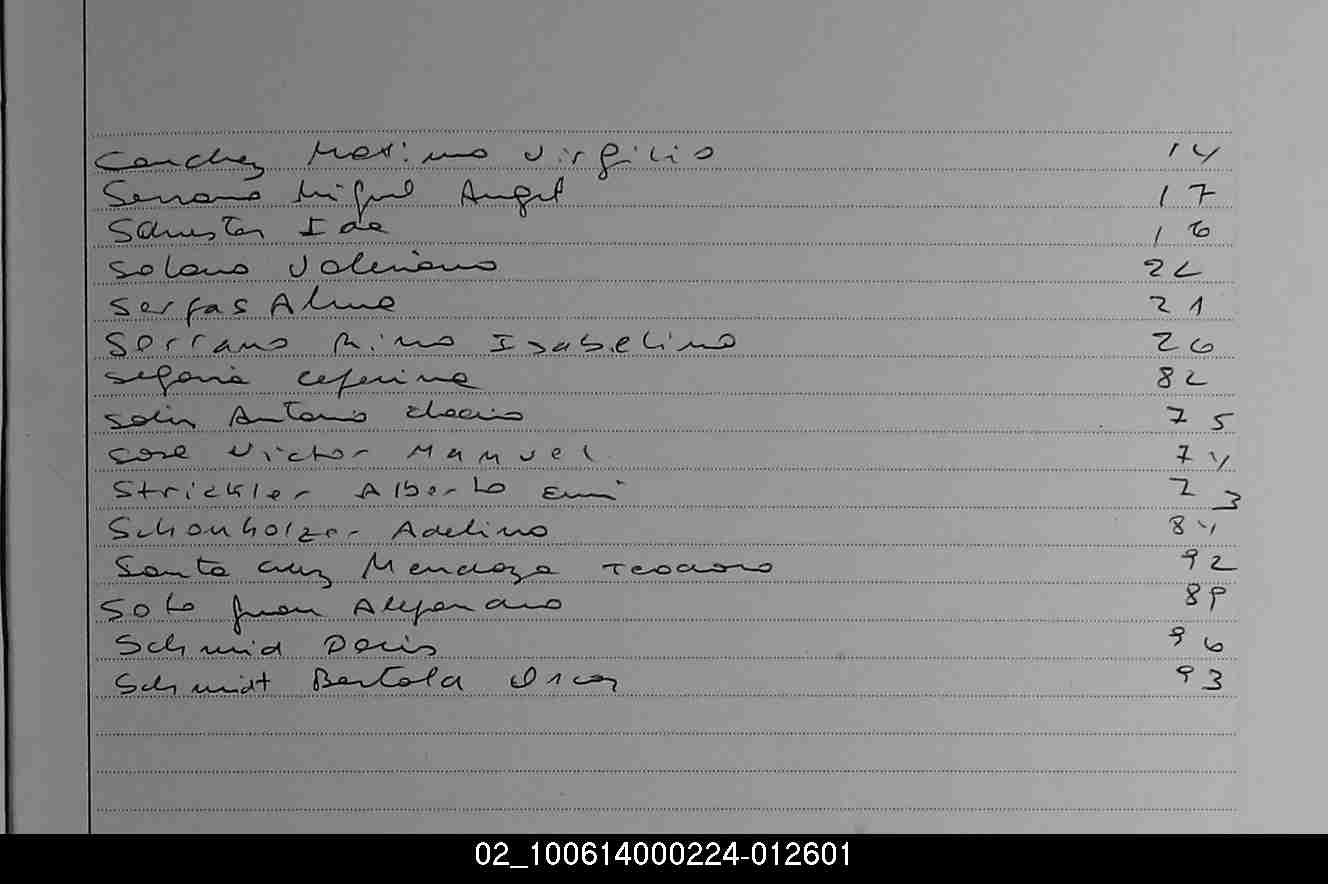 Canchez Maximo Virgilio 14
Serrano Miguel Angel 17
Schuster Ida 16
Solano Valeriano 22
Serfas Alma 21
Serrano Isabelino 26
Segovia Ceferina 82
Solis Antonio 75
Sosa Victor Manuel 74
Strickler Alberto 73
Schonholzer Adelino 84
Santa Cruz Mendoza Teodoro 92
Soto Juan Alejandro 89
Schmid Doris 96
Schmidt Bertola Oscar 93
02_100614000224-012601